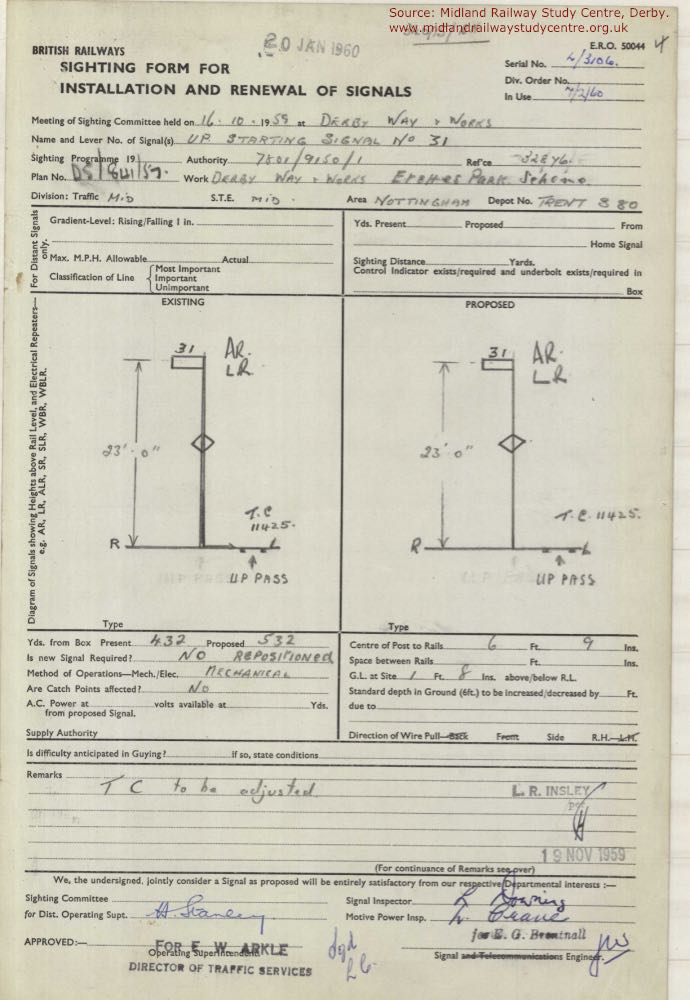 Source: Midland Railway Study Centre, Derby.
www.midlandrailwaystudycentre.org.uk
20 JAN 1960
BRITISH RAILWAYS
E.R.O. 50044 4
SIGHTING FORM FOR
INSTALLATION AND RENEWAL OF SIGNALS
Serial No. 4/3106.
Div. Order No.
In Use 7/2/60
Meeting of Sighting Committee held on 16 . 10 . 1959 at DERBY WAY & WORKS
Name and Lever No. of Signal(s) UP STARTING SIGNAL No 31
Sighting Programme 19 Authority 7801/9150/1 Ref'ce
Plan No. DS/841/57. Work DERBY WAY & WORKS ETCHES PARK. Scheme
Division: Traffic MID S.T.E. MID. Area NOTTINGHAM Depot No. TRENT 380
For Distant Signals only.
Gradient-Level: Rising/Falling 1 in.
Max. M.P.H. Allowable Actual
Classification of Line
Most Important
Important
Unimportant
Yds. Present Proposed From
Home Signal
Sighting Distance Yards.
Control Indicator exists/required and underbolt exists/required in
Box
Diagram of Signals showing Heights above Rail Level, and Electrical Repeaters—
e.g. AR, LR, ALR, SR, SLR, WBR, WBLR.
EXISTING
31 AR.
LR.
23'. 0"
T.C
11425.
R
UP PASS
Type
PROPOSED
31 AR.
LR
23'. 0"
T.C. 11425.
R
UP PASS
Type
Yds. from Box Present 432 Proposed 532
Is new Signal Required? NO REPOSITIONED
Method of Operations—Mech./Elec. MECHANICAL
Are Catch Points affected? No
A.C. Power at volts available at Yds.
from proposed Signal.
Supply Authority
Centre of Post to Rails 6 Ft. 9 Ins.
Space between Rails Ft. Ins.
G.L. at Site 1 Ft. 8 Ins. above/below R.L.
Standard depth in Ground (6ft.) to be increased/decreased by Ft.
due to
Direction of Wire Pull—Back Front Side R.H.—L.H.
Is difficulty anticipated in Guying? If so, state conditions
Remarks T C to be adjusted.
L. R. INSLEY
19 NOV 1959
(For continuance of Remarks see over)
We, the undersigned, jointly consider a Signal as proposed will be entirely satisfactory from our respective Departmental interests :—
Sighting Committee
for Dist. Operating Supt. H. Stanley
Signal Inspector L. Downing
Motive Power Insp. L. Crane
APPROVED:—
FOR E. W. ARKLE
Operating Superintendent
DIRECTOR OF TRAFFIC SERVICES
for E. G. Brentnall
Signal and Telecommunications Engineer.